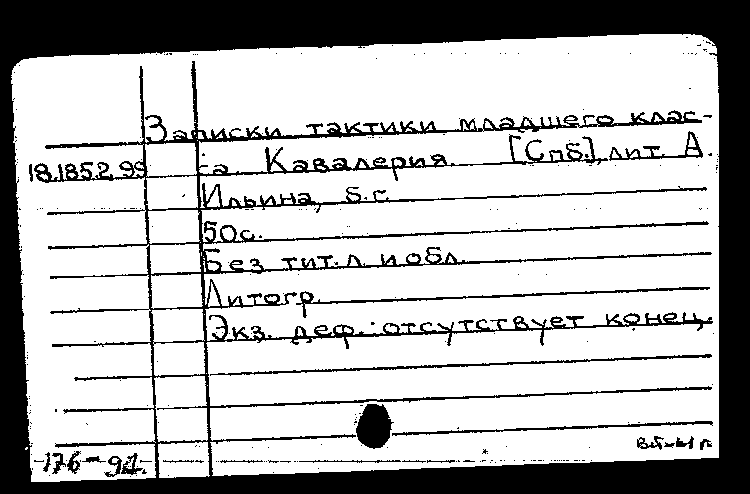 Записки тактики младшего клас-
18.185.2.99 са. Кавалерия. [Спб.], лит. А.
Ильина, б.г.
50с.
Без тит.л. и обл.
Литогр.
Экз. деф.: отсутствует конец.
176-91.